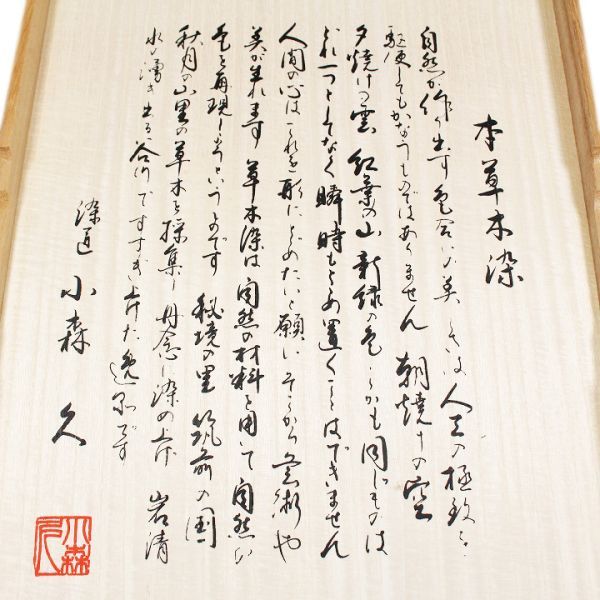 本草木染
自然が作り出す色合いの美しさは人工の極致を
駆使してもかなうものではありません 朝焼けの空
夕焼けの雲 紅葉の山 新緑の色しかも同じものは
どれ一つとしてなく瞬時もとめ置くことはできません
人間の心はこれを形にとどめたいと願いそこから芸術や
美が生れます 草木染は自然の材料を用いて自然の
色を再現しようというものです 秘境の里 筑前の国
秋月の山里の草木を採集し丹念に染め上げ 岩清
水の湧き出る谷川ですすぎ上げた逸品です
染道 小森 久
小森久